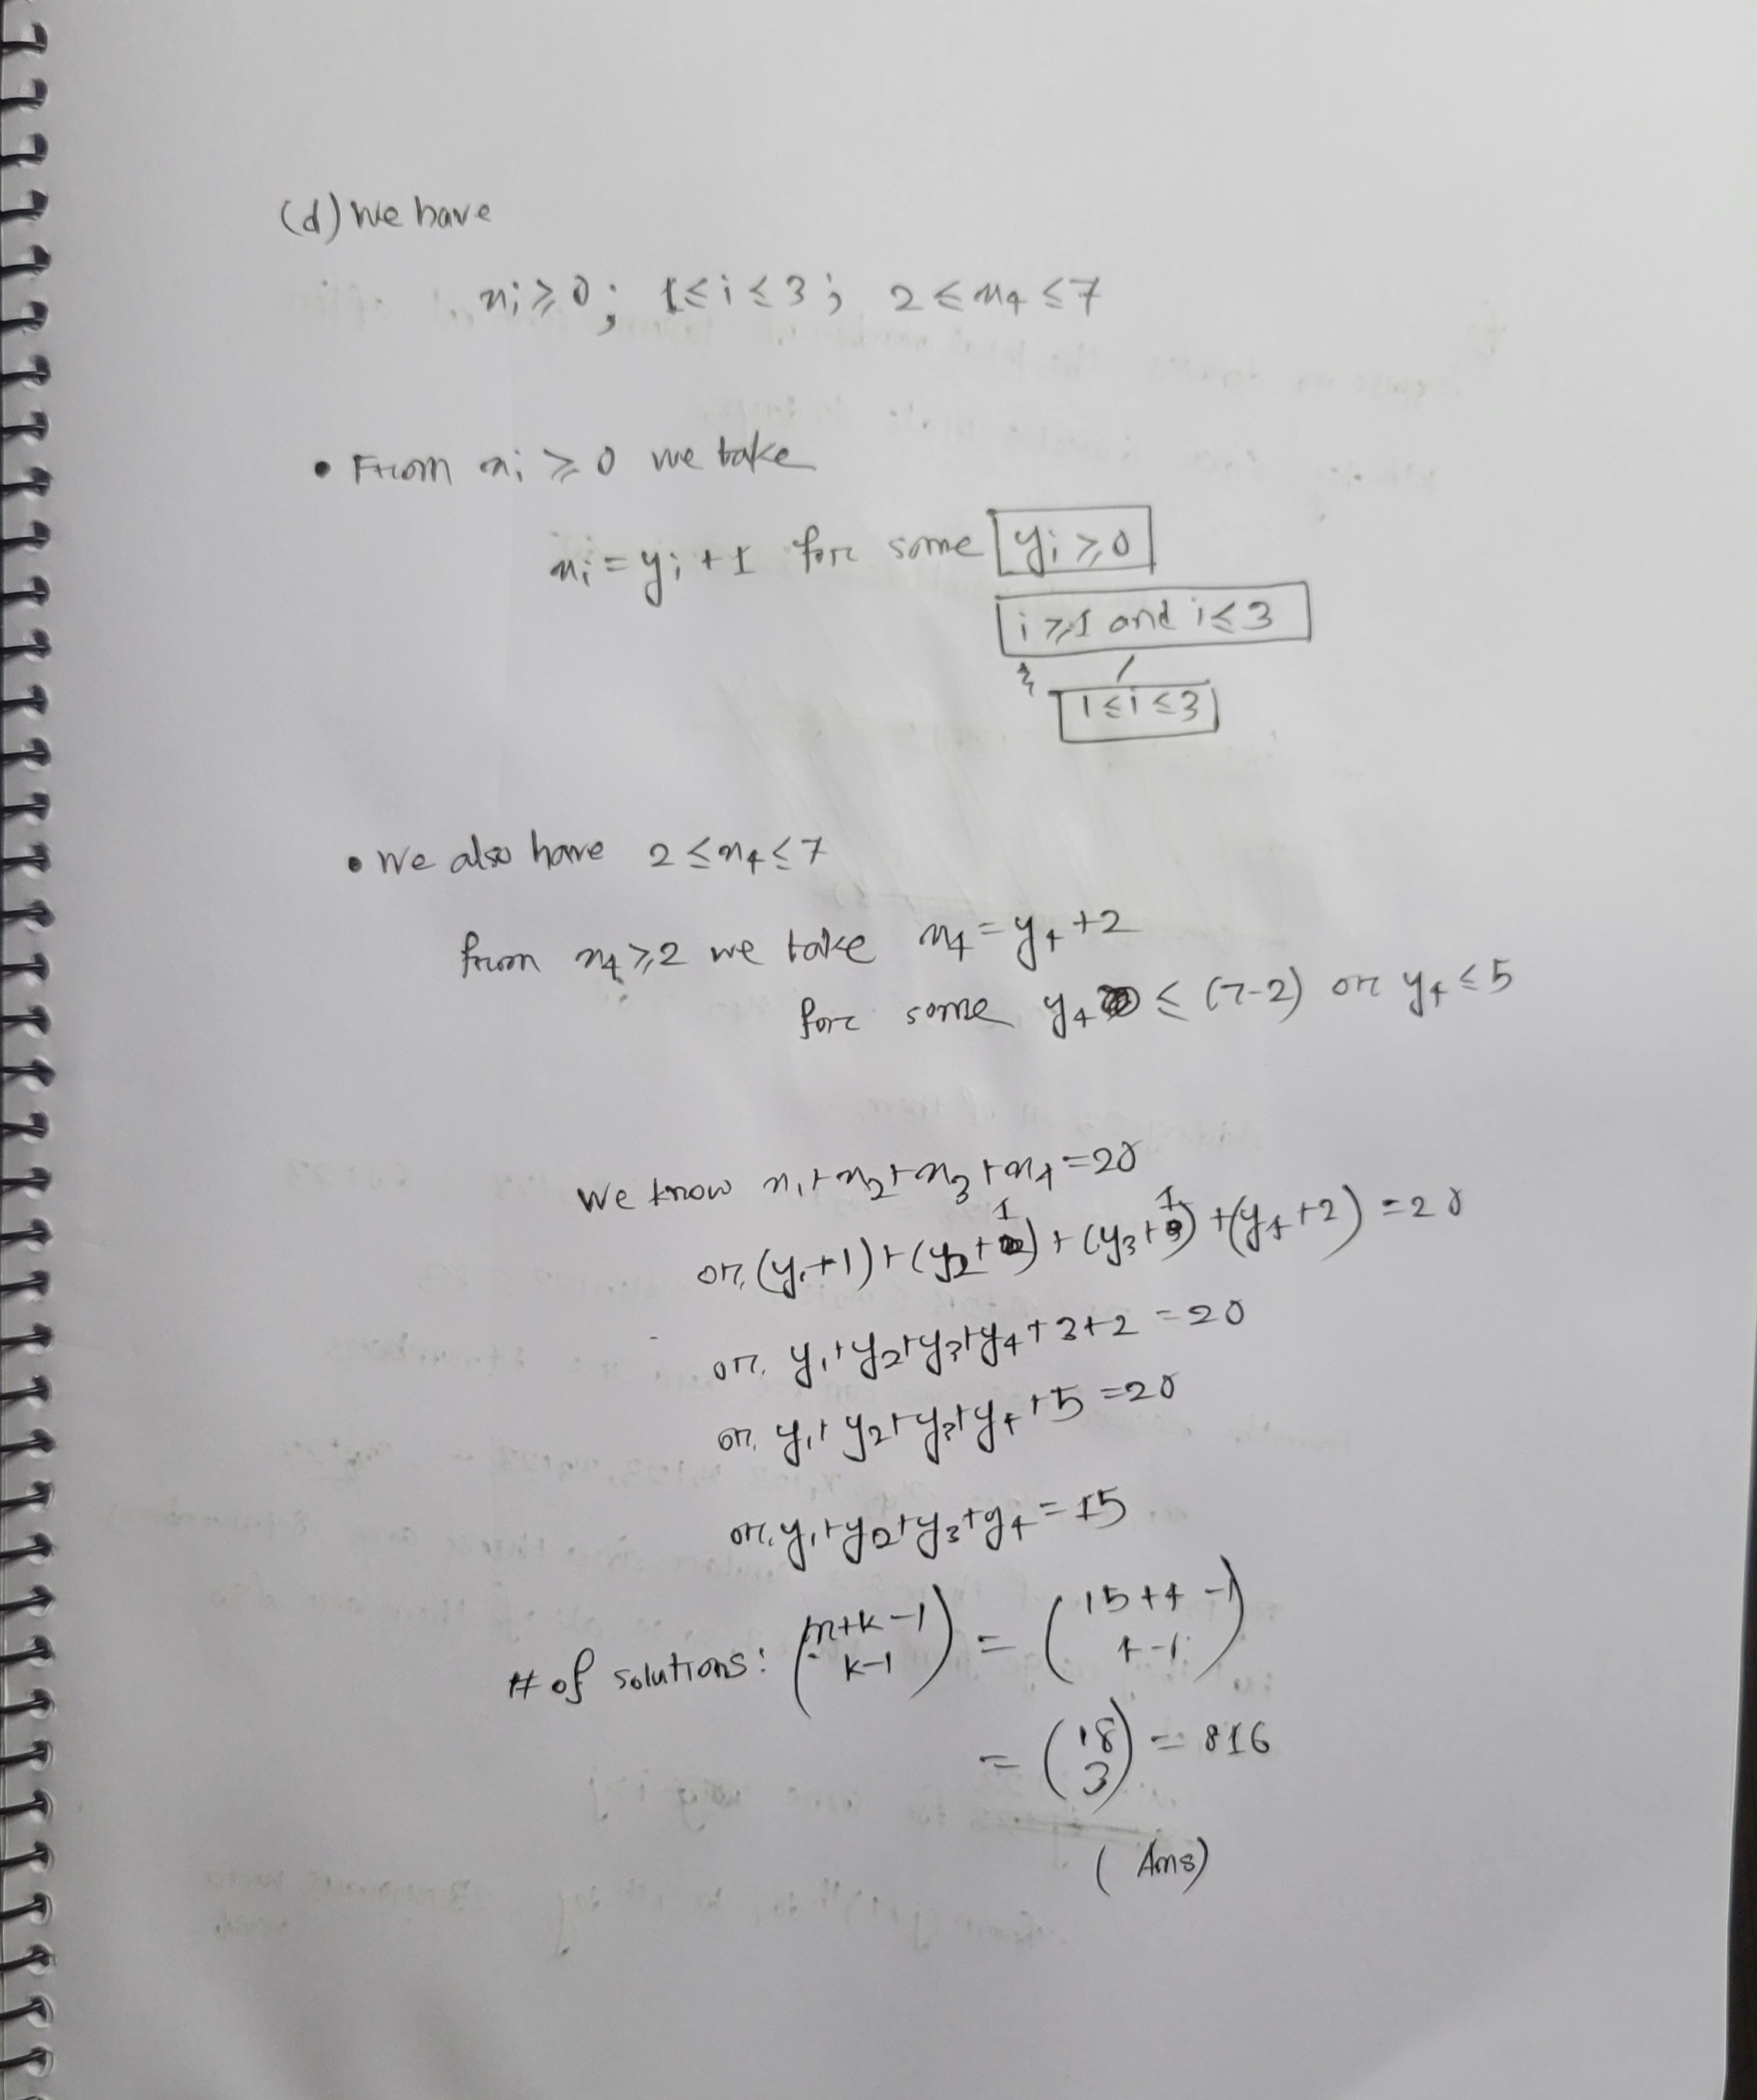 (d) We have
xi ≥ 0; 1 ≤ i ≤ 3; 2 ≤ x4 ≤ 7
• From xi ≥ 0 we take
xi = yi + 1 for some yi ≥ 0
i ≥ 1 and i ≤ 3
1 ≤ i ≤ 3
• We also have 2 ≤ x4 ≤ 7
from x4 ≥ 2 we take x4 = y4 + 2
for some y4 ≤ (7-2) or y4 ≤ 5
We know x1 + x2 + x3 + x4 = 20
or, (y1+1) + (y2+1) + (y3+1) + (y4+2) = 20
or, y1+y2+y3+y4+3+2 = 20
or, y1+y2+y3+y4+5 = 20
or, y1+y2+y3+y4 = 15
# of solutions: (n+k-1 k-1) = (15+4-1 4-1)
= (18 3) = 816
(Ans)